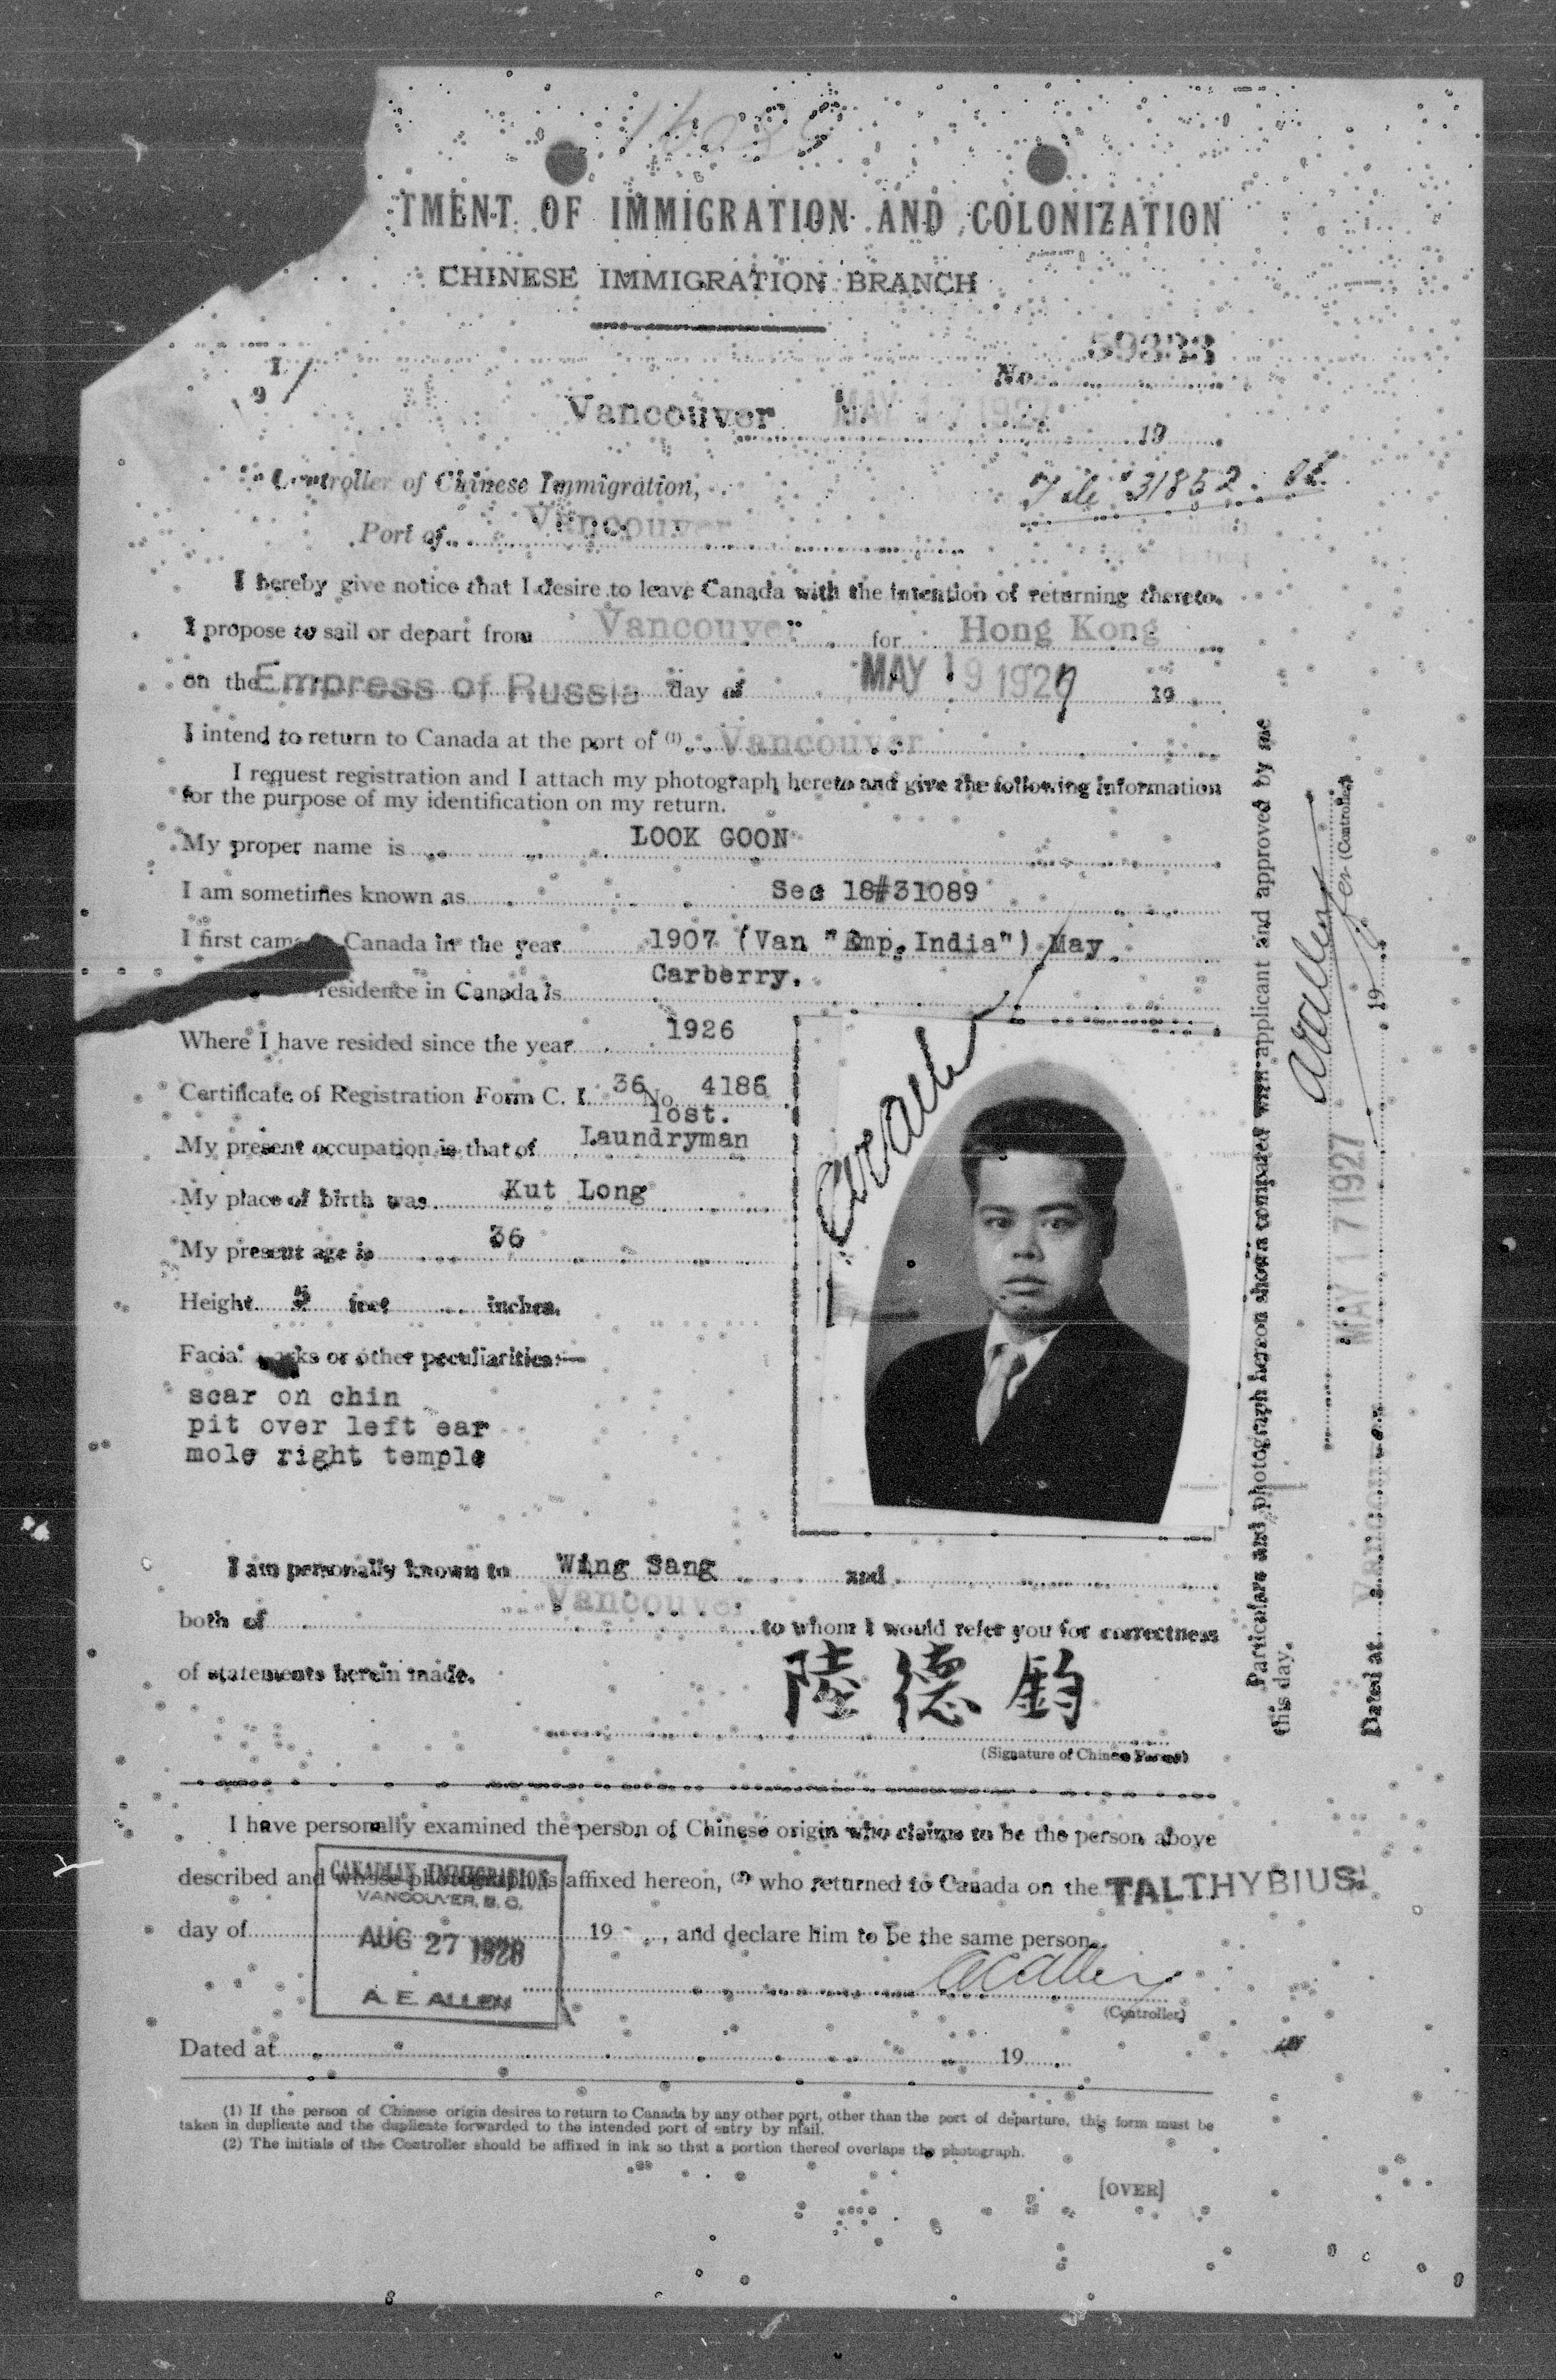 TMENT OF IMMIGRATION AND COLONIZATION
CHINESE IMMIGRATION BRANCH
I
9
No. 59333
Vancouver MAY 17 1927 19
Controller of Chinese Immigration,
File 31852.
Port of Vancouver
I hereby give notice that I desire to leave Canada with the intention of returning thereto.
I propose to sail or depart from Vancouver for Hong Kong
on the Empress of Russia day of MAY 19 1927 19
I intend to return to Canada at the port of (1) Vancouver
I request registration and I attach my photograph hereto and give the following information
for the purpose of my identification on my return.
My proper name is LOOK GOON
I am sometimes known as Sec 18#31089
I first came Canada in the year 1907 (Van "Emp. India") May
residence in Canada is Carberry.
Where I have resided since the year 1926
Certificate of Registration Form C. I. 36 No. 4186
lost.
My present occupation is that of Laundryman
My place of birth was Kut Long
My present age is 36
Height 5 feet inches.
Facial marks or other peculiarities:—
scar on chin
pit over left ear
mole right temple
I am personally known to Wing Sang and
both of Vancouver to whom I would refer you for correctness
of statements herein made.
陸德鈞
(Signature of Chinese Person)
I have personally examined the person of Chinese origin who claims to be the person above
described and whose photograph is affixed hereon, (2) who returned to Canada on the TALTHYBIUS
day of 19 , and declare him to be the same person.
CANADIAN IMMIGRATION
VANCOUVER, B. C.
AUG 27 1928
A. E. ALLEN
(Controller)
Dated at 19
(1) If the person of Chinese origin desires to return to Canada by any other port, other than the port of departure, this form must be
taken in duplicate and the duplicate forwarded to the intended port of entry by mail.
(2) The initials of the Controller should be affixed in ink so that a portion thereof overlaps the photograph.
[OVER]
Particulars and photograph hereon shown compared with applicant and approved by me
this day.
MAY 17 1927
(Controller)
Dated at Vancouver 19